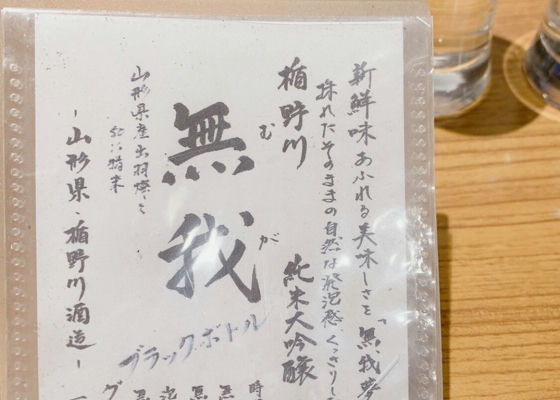 新鮮味あふれる美味しさを「無我夢
採れたそのままの自然な発泡感、くっきりし
楯野川 純米大吟醸
無我
むが
ブラックボトル
山形県産出羽燦々
山形県・楯野川酒造